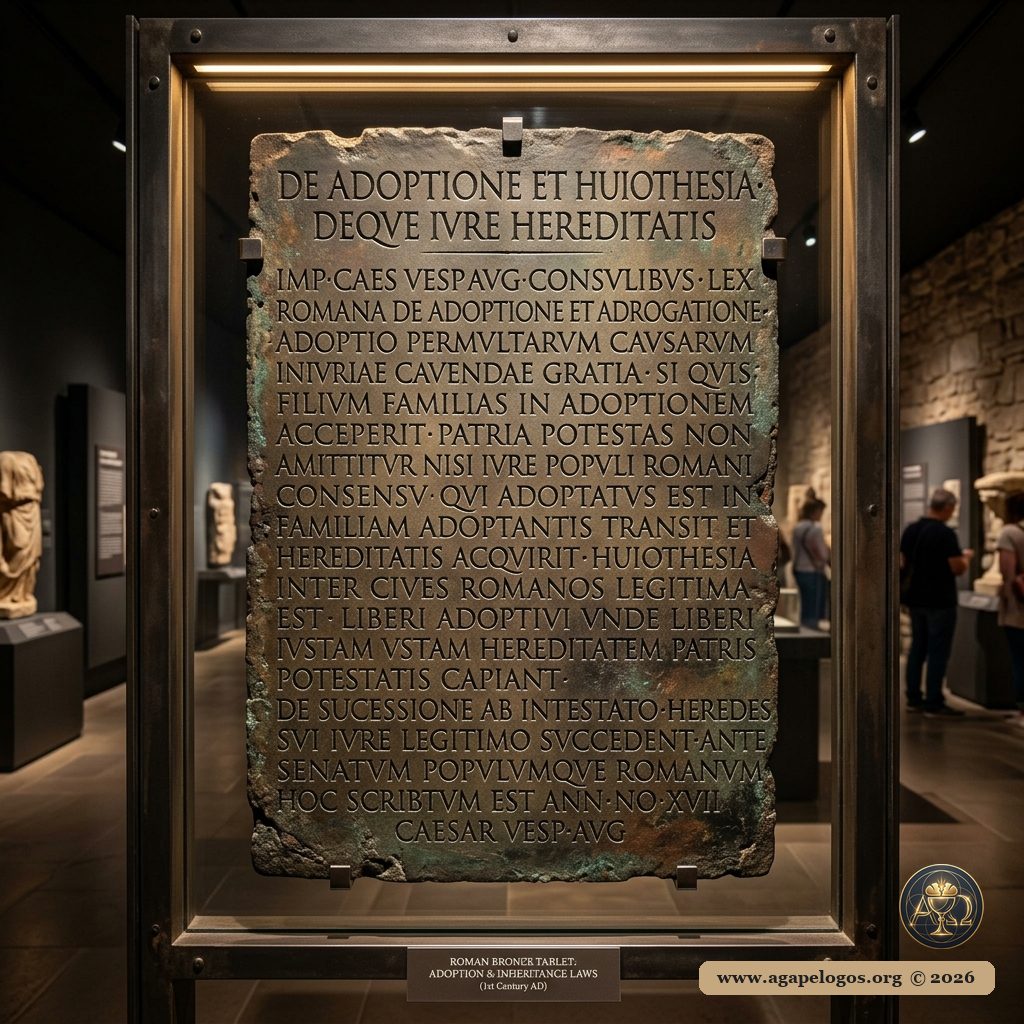 DE ADOPTIONE ET HUIOTHESIA·
DEQVE IVRE HEREDITATIS
IMP·CAES VESPAVG·CONSVLIBVS·LEX
ROMANA DE ADOPTIONE ET ADROGATIONE·
·ADOPTIO PERMVLTARVM CAVSARVM
INIVRIAE CAVENDAE GRATIA·SI QVIS·
FILIVM FAMILIAS IN ADOPTIONEM
ACCEPERIT·PATRIA POTESTAS NON
AMITTITVR NISI IVRE POPVLI ROMANI
CONSENSV·QVI ADOPTATVS EST IN
FAMILIAM ADOPTANTIS TRANSIT ET
HEREDITATIS ACQVIRIT·HUIOTHESIA
INTER CIVES ROMANOS LEGITIMA·
EST·LIBERI ADOPTIVI VNDE LIBERI
IVSTAM VSTAM HEREDITATEM PATRIS
POTESTATIS CAPIANT·
DE SUCESSIONE AB INTESTATO·HEREDES
SVI IVRE LEGITIMO SVCCEDENT·ANTE
SENATVM POPVLVMQVE ROMANVM
HOC SCRIBTVM EST ANN·NO·XVII
CAESAR VESP·AVG
ROMAN BRONZE TARLET:
ADOPTION & INHERITANCE LAWS
(1st Century AD)
ΑΩ
www.agapelogos.org © 2026